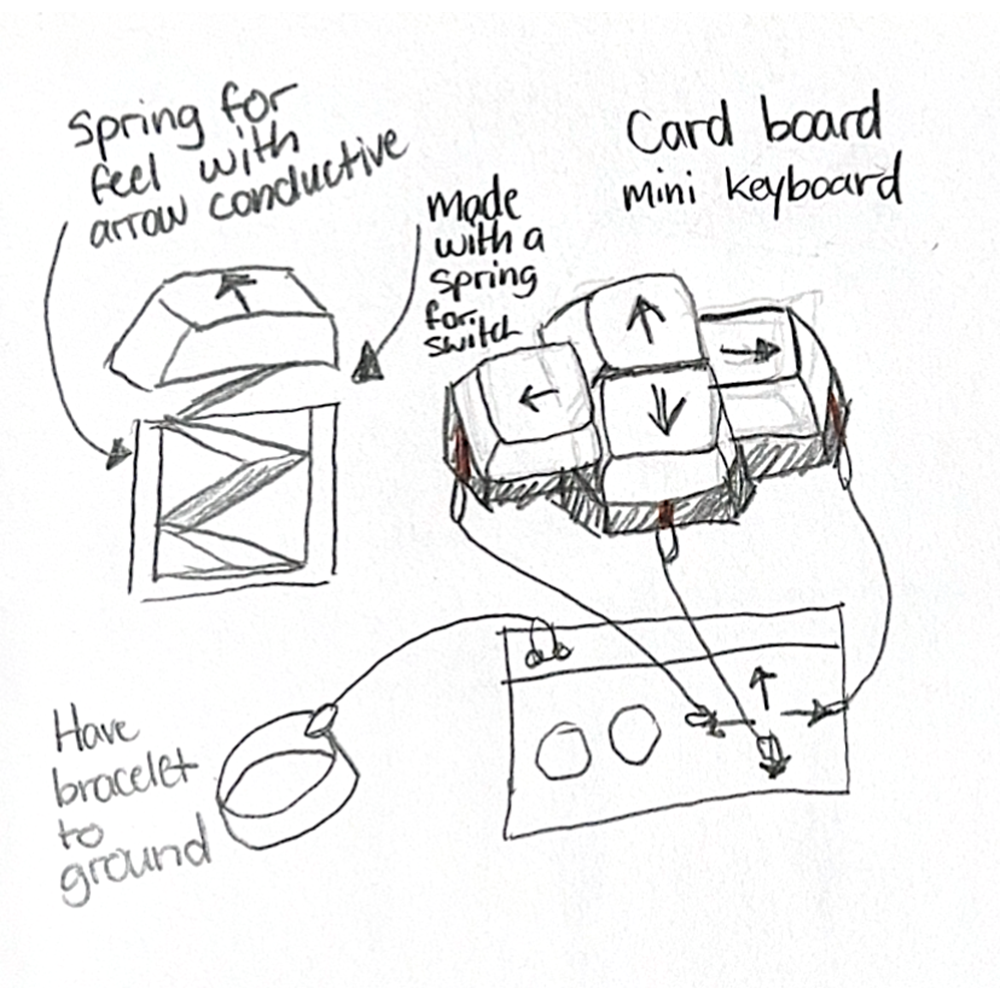 Spring for
feel with
arrow conductive
Card board
mini keyboard
made
with a
spring
for
switch
Have
bracelet
to
ground